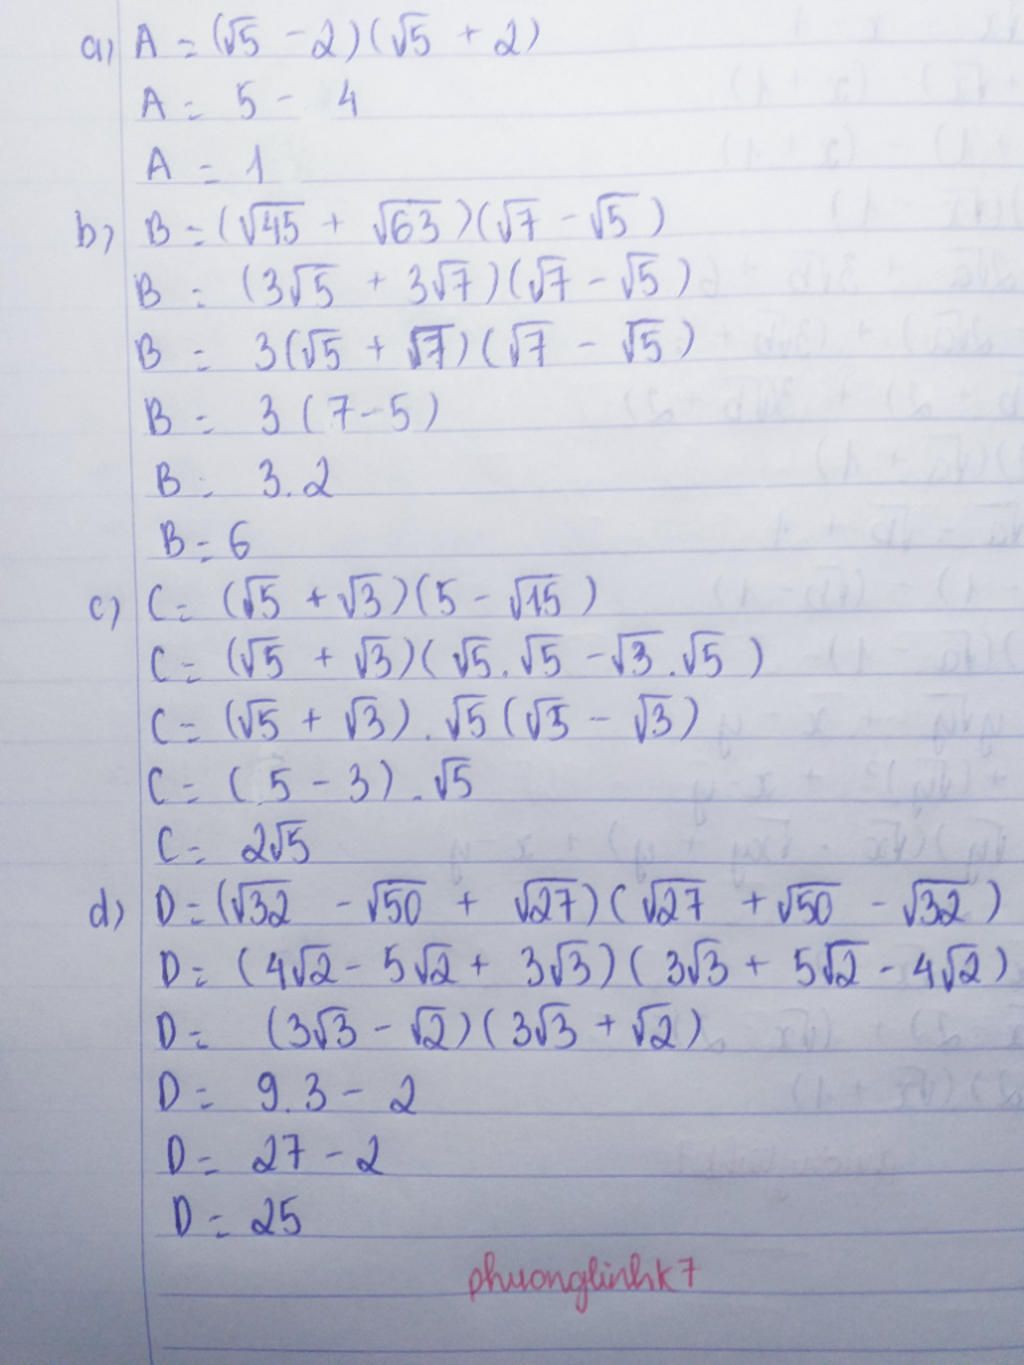 a) A = (√5 - 2)(√5 + 2)
A = 5 - 4
A = 1
b) B = (√45 + √63)(√7 - √5)
B = (3√5 + 3√7)(√7 - √5)
B = 3(√5 + √7)(√7 - √5)
B = 3(7-5)
B = 3.2
B = 6
c) C = (√5 + √3)(5 - √15)
C = (√5 + √3)(√5.√5 - √3.√5)
C = (√5 + √3).√5(√5 - √3)
C = (5 - 3).√5
C = 2√5
d) D = (√32 - √50 + √27)(√27 + √50 - √32)
D = (4√2 - 5√2 + 3√3)(3√3 + 5√2 - 4√2)
D = (3√3 - √2)(3√3 + √2)
D = 9.3 - 2
D = 27 - 2
D = 25
phuonglinhk7